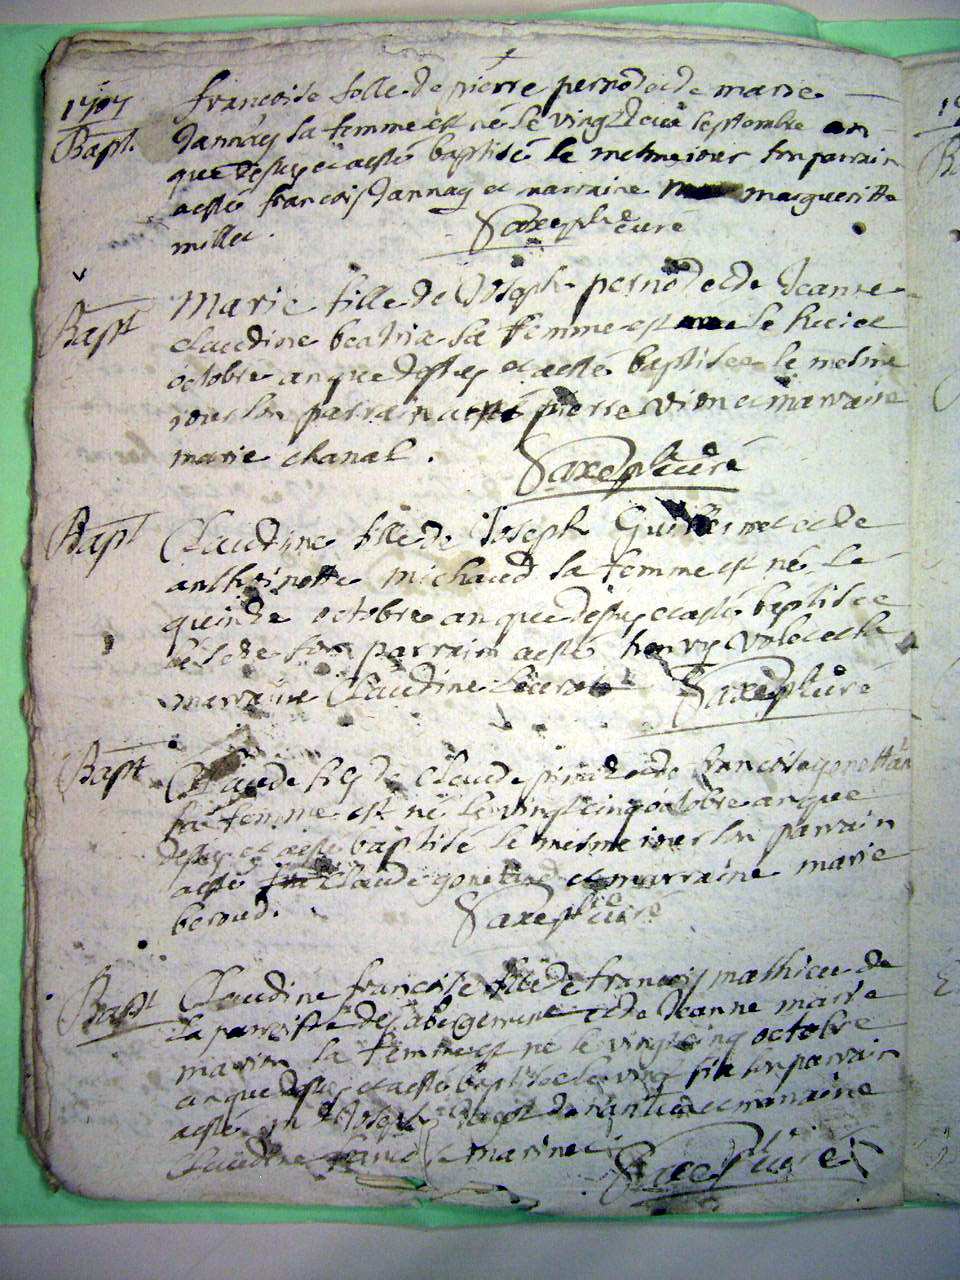 1707
Bapt
françoise fille de pierre pernod et de marie
Jannay sa femme est né le vingt deux septembre an
que desus et a esté baptisé le mesme iour son parrain
a esté françois Jannay et marraine margueritte
millet.
Saxe pbre curé
Bapt
Marie fille de Joseph pernod et de Jeanne
claudine beatrix sa femme est née le huict
octobre an que desus et a esté baptisee le mesme
iour son parrain a esté pierre vion et marraine
marie chanal.
Saxe pbr curé
Bapt
Claudine fille de Joseph Guillermet et de
anthoinette michaud sa femme est né le
quinze octobre an que desus et a esté baptisee
le son parrain a esté henry et la
marraine Claudine
Saxe pbr curé
Bapt
Claude fils de Claude et de françoise gonettan
sa femme est né le vingt cinq octobre an que
desus et a esté baptisé le mesme iour son parrain
a esté Claude et marraine marie
beroud.
Saxe pbr curé
Bapt
Claudine françoise fille de françois mathieu de
la parroisse de et de Jeanne marie
marin sa femme est né le vingt cinq octobre
an que desus et a esté baptisee le vingt six son parrain
a esté Joseph et marraine
Claudine
Saxe pbr curé